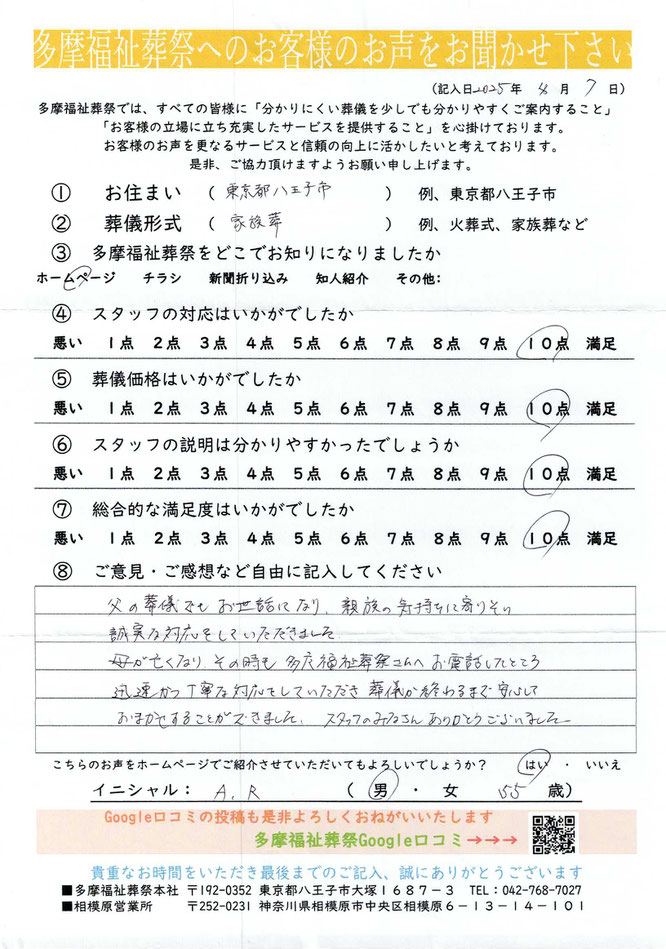 多摩福祉葬祭へのお客様のお声をお聞かせ下さい
(記入日2025年 4 月 7 日)
多摩福祉葬祭では、すべての皆様に「分かりにくい葬儀を少しでも分かりやすくご案内すること」
「お客様の立場に立ち充実したサービスを提供すること」を心掛けております。
お客様のお声を更なるサービスと信頼の向上に活かしたいと考えております。
是非、ご協力頂けますようお願い申し上げます。
① お住まい ( 東京都八王子市 ) 例、東京都八王子市
② 葬儀形式 ( 家族葬 ) 例、火葬式、家族葬など
③ 多摩福祉葬祭をどこでお知りになりましたか
ホームページ チラシ 新聞折り込み 知人紹介 その他:
④ スタッフの対応はいかがでしたか
悪い 1点 2点 3点 4点 5点 6点 7点 8点 9点 10点 満足
⑤ 葬儀価格はいかがでしたか
悪い 1点 2点 3点 4点 5点 6点 7点 8点 9点 10点 満足
⑥ スタッフの説明は分かりやすかったでしょうか
悪い 1点 2点 3点 4点 5点 6点 7点 8点 9点 10点 満足
⑦ 総合的な満足度はいかがでしたか
悪い 1点 2点 3点 4点 5点 6点 7点 8点 9点 10点 満足
⑧ ご意見・ご感想など自由に記入してください
父の葬儀でもお世話になり、親族の気持ちに寄りそい
誠実な対応をしていただきました
母が亡くなり、その時も多摩福祉葬祭さんへお電話したところ
迅速かつ丁寧な対応をしていただき葬儀が終わるまで安心して
おまかせすることができました。スタッフのみなさんありがとうございました
こちらのお声をホームページでご紹介させていただいてもよろしいでしょうか? はい ・ いいえ
イニシャル: A.R ( 男 ・ 女 55 歳)
Google口コミの投稿も是非よろしくおねがいいたします
多摩福祉葬祭Google口コミ→→→
貴重なお時間をいただき最後までのご記入、誠にありがとうございます
■多摩福祉葬祭本社 〒192-0352 東京都八王子市大塚1687-3 TEL:042-768-7027
■相模原営業所 〒252-0231 神奈川県相模原市中央区相模原6-13-14-101